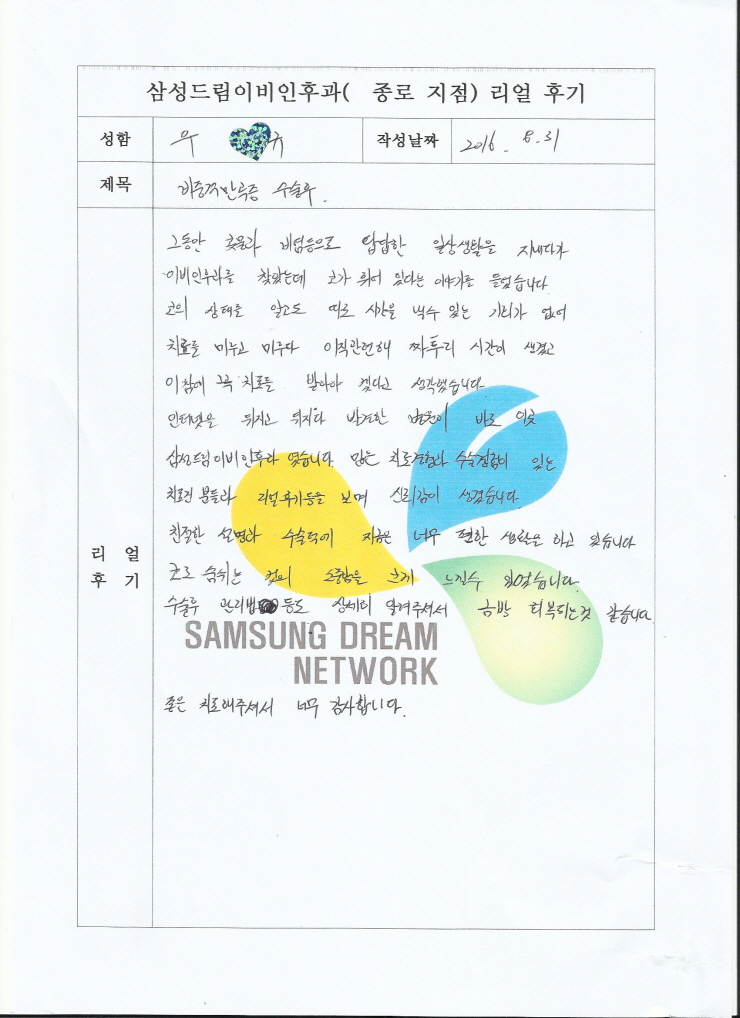 삼성드림이비인후과( 종로 지점) 리얼 후기
성함 우 규
작성날짜 2016. 8. 31
제목 비중격만곡증 수술후.
리얼 후기
그동안 콧물과 비염등으로 답답한 일상생활을 지내다가
이비인후과를 찾았는데 코가 휘어 있다는 이야기를 들었습니다.
코의 상태를 알고도 따로 시간을 낼수 있는 기회가 없어
치료를 미루고 미루다 이직관련해 짜투리 시간이 생겼고
이참에 그곡 치료를 받아야 겠다고 생각했습니다.
인터넷을 뒤지고 뒤지다 발견한 병원이 바로 이곳
삼성드림이비인후과 였습니다. 많은 치료경험과 수술경험이 있는
치료진 분들과 리얼후기등을 보며 신뢰감이 생겼습니다.
친절한 설명과 수술덕에 지금은 너무 편한 생활을 하고 있습니다
코로 숨쉬는 것의 소중함을 크게 느낄수 있었습니다.
수술후 관리법 등도 상세히 알려주셔서 금방 회복되는것 같습니다
SAMSUNG DREAM
NETWORK
좋은 치료해주셔서 너무 감사합니다.